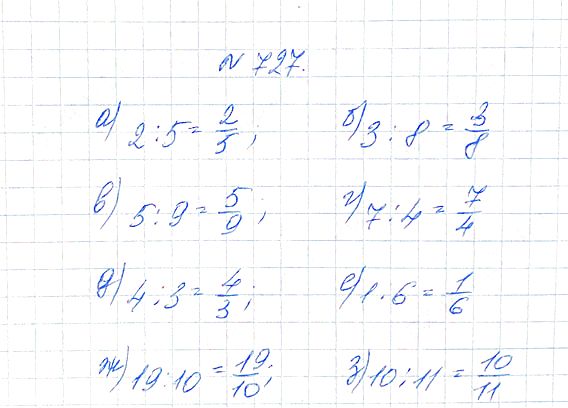 № 727.
а) 2 : 5 = 2/5; б) 3 : 8 = 3/8
в) 5 : 9 = 5/9; г) 7 : 4 = 7/4
д) 4 : 3 = 4/3; е) 1 : 6 = 1/6
ж) 19 : 10 = 19/10; з) 10 : 11 = 10/11